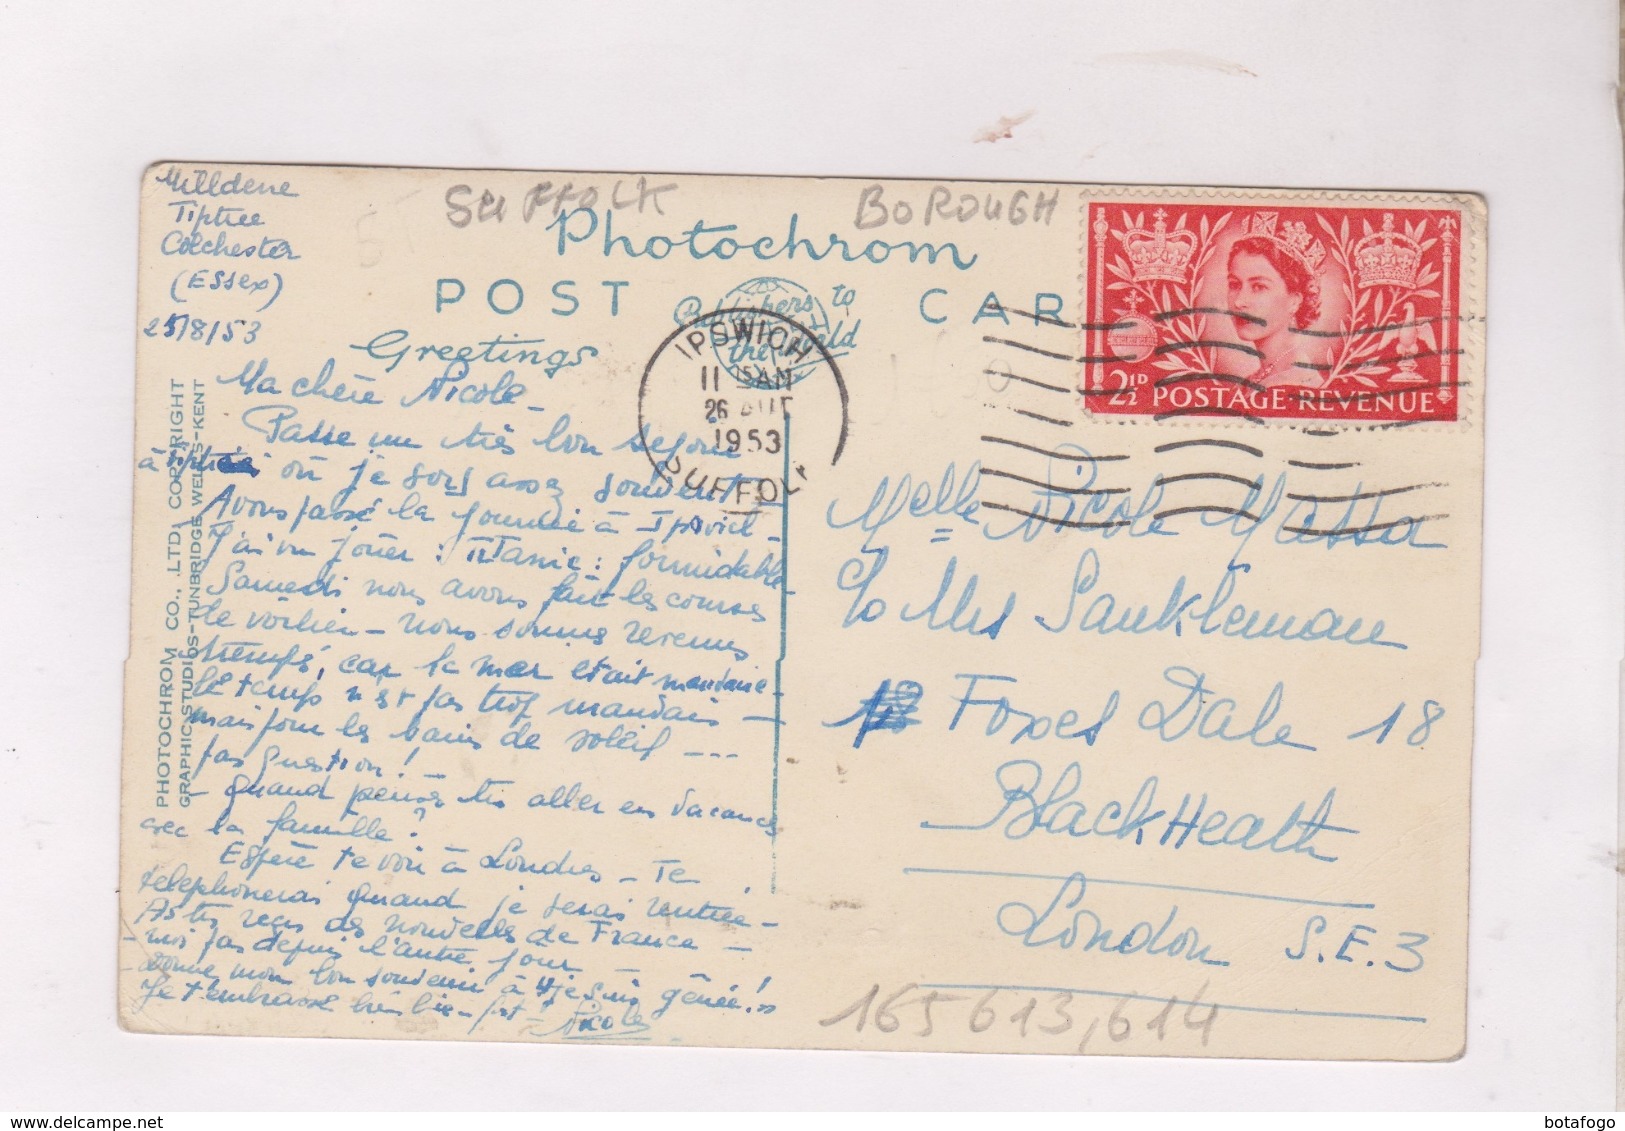 Milldene
Tiptree
Colchester
(Essex)
25/8/53
SUFFOLK
BOROUGH
Photochrom
POST CAR
Publishers to
the World
Greetings
IPSWICH
11 15 AM
26 AUG
1953
SUFFOLK
2½D POSTAGE REVENUE
PHOTOCHROM CO., LTD. COPYRIGHT
GRAPHIC STUDIOS-TUNBRIDGE WELLS-KENT
Ma chère Nicole -
Passe un très bon sejour
à Tiptree où je sors assez souvent
Avons passé la journée à Ipswich -
J'ai vu jouer : Titanic : formidable -
Samedi nous avons fait les courses
de voilier - nous sommes revenus
trempés, car la mer était mauvaise -
Le temps n'est pas trop mauvais -
mais pour les bains de soleil ---
pas question! -
- Quand penses tu aller en vacances
avec la famille?
Espère te voir à Londres - Te
telephonerai quand je serai rentrée -
As tu reçu des nouvelles de France -
- moi pas depuis l'autre jour
- Donne mon bon souvenir à "je suis gênée!"
Je t'embrasse bien
Nicole
Melle Nicole Massa
c/o Mrs Sankleman
Foxes Dale 18
BlackHeath
London S.E.3
165 613,614
botafogo